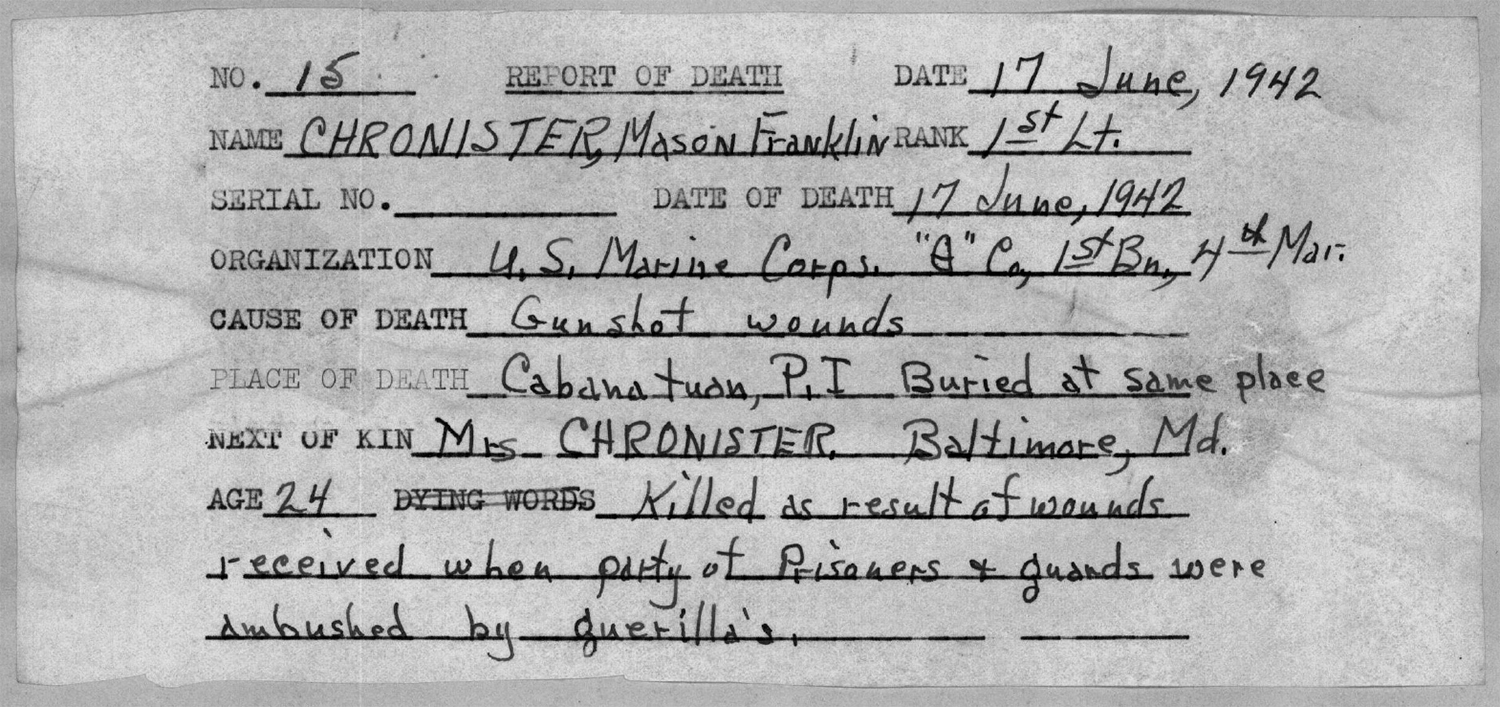 NO. 15 REPORT OF DEATH DATE 17 June, 1942
NAME CHRONISTER, Mason Franklin RANK 1st Lt.
SERIAL NO. DATE OF DEATH 17 June, 1942
ORGANIZATION U.S. Marine Corps. Co, 1st Bn., 4th Mar.
CAUSE OF DEATH Gunshot wounds
PLACE OF DEATH Cabanatuan, P.I Buried at same place
NEXT OF KIN Mrs CHRONISTER. Baltimore, Md.
AGE 24 DYING WORDS Killed as result of wounds
received when party of Prisoners & guards were
ambushed by guerilla's.